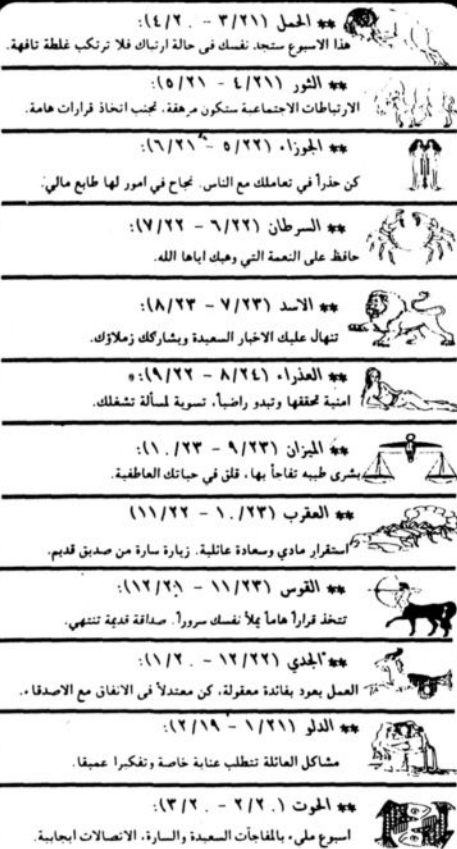 ** الحمل (٣/٢١ - ٤/٢٠):
هذا الاسبوع ستجد نفسك فى حالة ارتباك فلا ترتكب غلطة تافهة.
** الثور (٤/٢١ - ٥/٢١):
الارتباطات الاجتماعية ستكون مرهقة، تجنب اتخاذ قرارات هامة.
** الجوزاء (٥/٢٢ - ٦/٢١):
كن حذراً في تعاملك مع الناس. نجاح في امور لها طابع مالي.
** السرطان (٦/٢٢ - ٧/٢٢):
حافظ على النعمة التي وهبك اياها الله.
** الاسد (٧/٢٣ - ٨/٢٣):
تنهال عليك الاخبار السعيدة ويشاركك زملاؤك.
** العذراء (٨/٢٤ - ٩/٢٢):*
امنية تحققها وتبدو راضياً. تسوية لمسألة تشغلك.
** الميزان (٩/٢٣ - ١٠/٢٣):
بشرى طيبه تفاجأ بها، قلق في حياتك العاطفية.
** العقرب (١٠/٢٣ - ١١/٢٢)
استقرار مادي وسعادة عائلية. زيارة سارة من صديق قديم.
** القوس (١١/٢٣ - ١٢/٢١):
تتخذ قراراً هاماً يملأ نفسك سروراً. صداقة قديمة تنتهي.
** الجدي (١٢/٢٢ - ١/٢٠):
العمل يعود بفائدة معقولة، كن معتدلاً فى الانفاق مع الاصدقاء.
** الدلو (١/٢١ - ٢/١٩):
مشاكل العائلة تتطلب عناية خاصة وتفكيرا عميقا.
** الحوت (٢/٢٠ - ٣/٢٠):
اسبوع ملىء بالمفاجآت السعيدة والسارة، الاتصالات ايجابية.